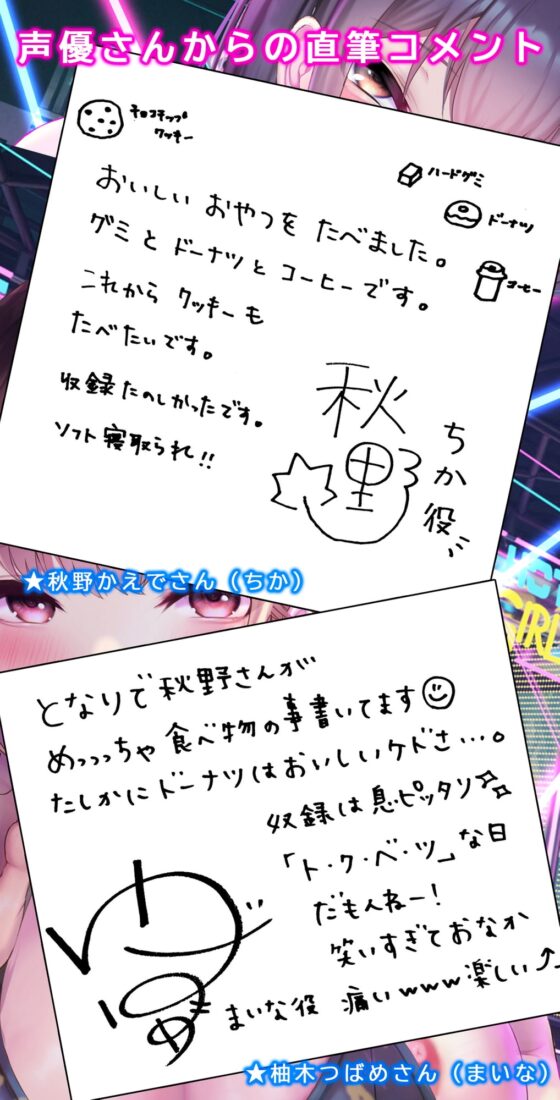 声優さんからの直筆コメント
チョコチップ
クッキー
ハードグミ
ドーナツ
コーヒー
おいしい おやつを たべました。
グミ と ドーナツ と コーヒー です。
これから クッキー も
たべたいです。
収録 たのしかったです。
ソフト 寝取られ!!
秋
野
ちか役
★秋野かえでさん（ちか）
となりで 秋野さんが
めっっっちゃ 食べ物の事書いてます
たしかにドーナツはおいしいケドさ…。
収録は息ピッタリ
「ト・ク・ベ・ツ」な日
だもんねー!
笑いすぎておなか
痛いwww楽しい⤴
まいな役
★柚木つばめさん（まいな）